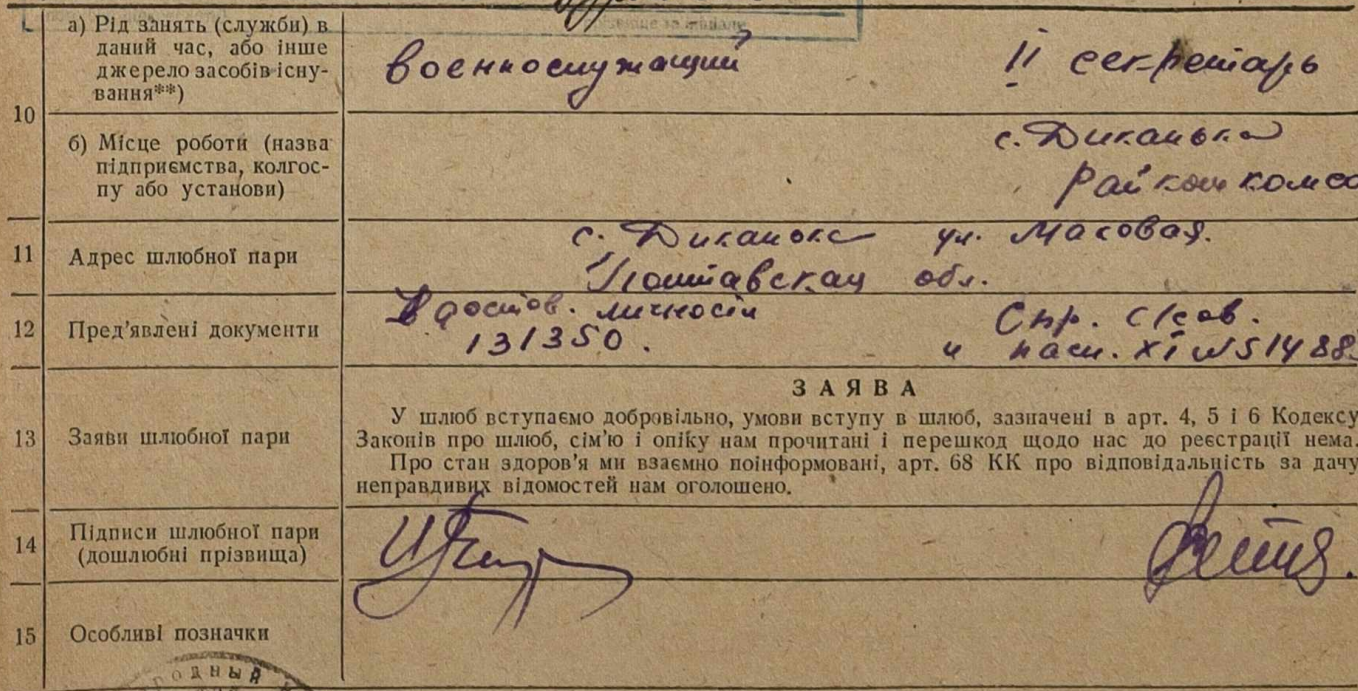 а) Рід занять (служби) в
даний час, або інше
джерело засобів існу-
вання**)
военнослужащий
II секретарь
10
б) Місце роботи (назва
підприємства, колгос-
пу або установи)
с. Диканька
Райком комсо
11
Адрес шлюбної пари
с. Диканька ул. Маковая.
Полтавская обл.
12
Пред'явлені документи
удостов. личности
131350.
Спр. с/сов.
и пасп. XI № 51488
13
Заяви шлюбної пари
ЗАЯВА
У шлюб вступаємо добровільно, умови вступу в шлюб, зазначені в арт. 4, 5 і 6 Кодексу
Законів про шлюб, сім'ю і опіку нам прочитані і перешкод щодо нас до реєстрації нема.
Про стан здоров'я ми взаємно поінформовані, арт. 68 КК про відповідальність за дачу
неправдивих відомостей нам оголошено.
14
Підписи шлюбної пари
(дошлюбні прізвища)
15
Особливі позначки